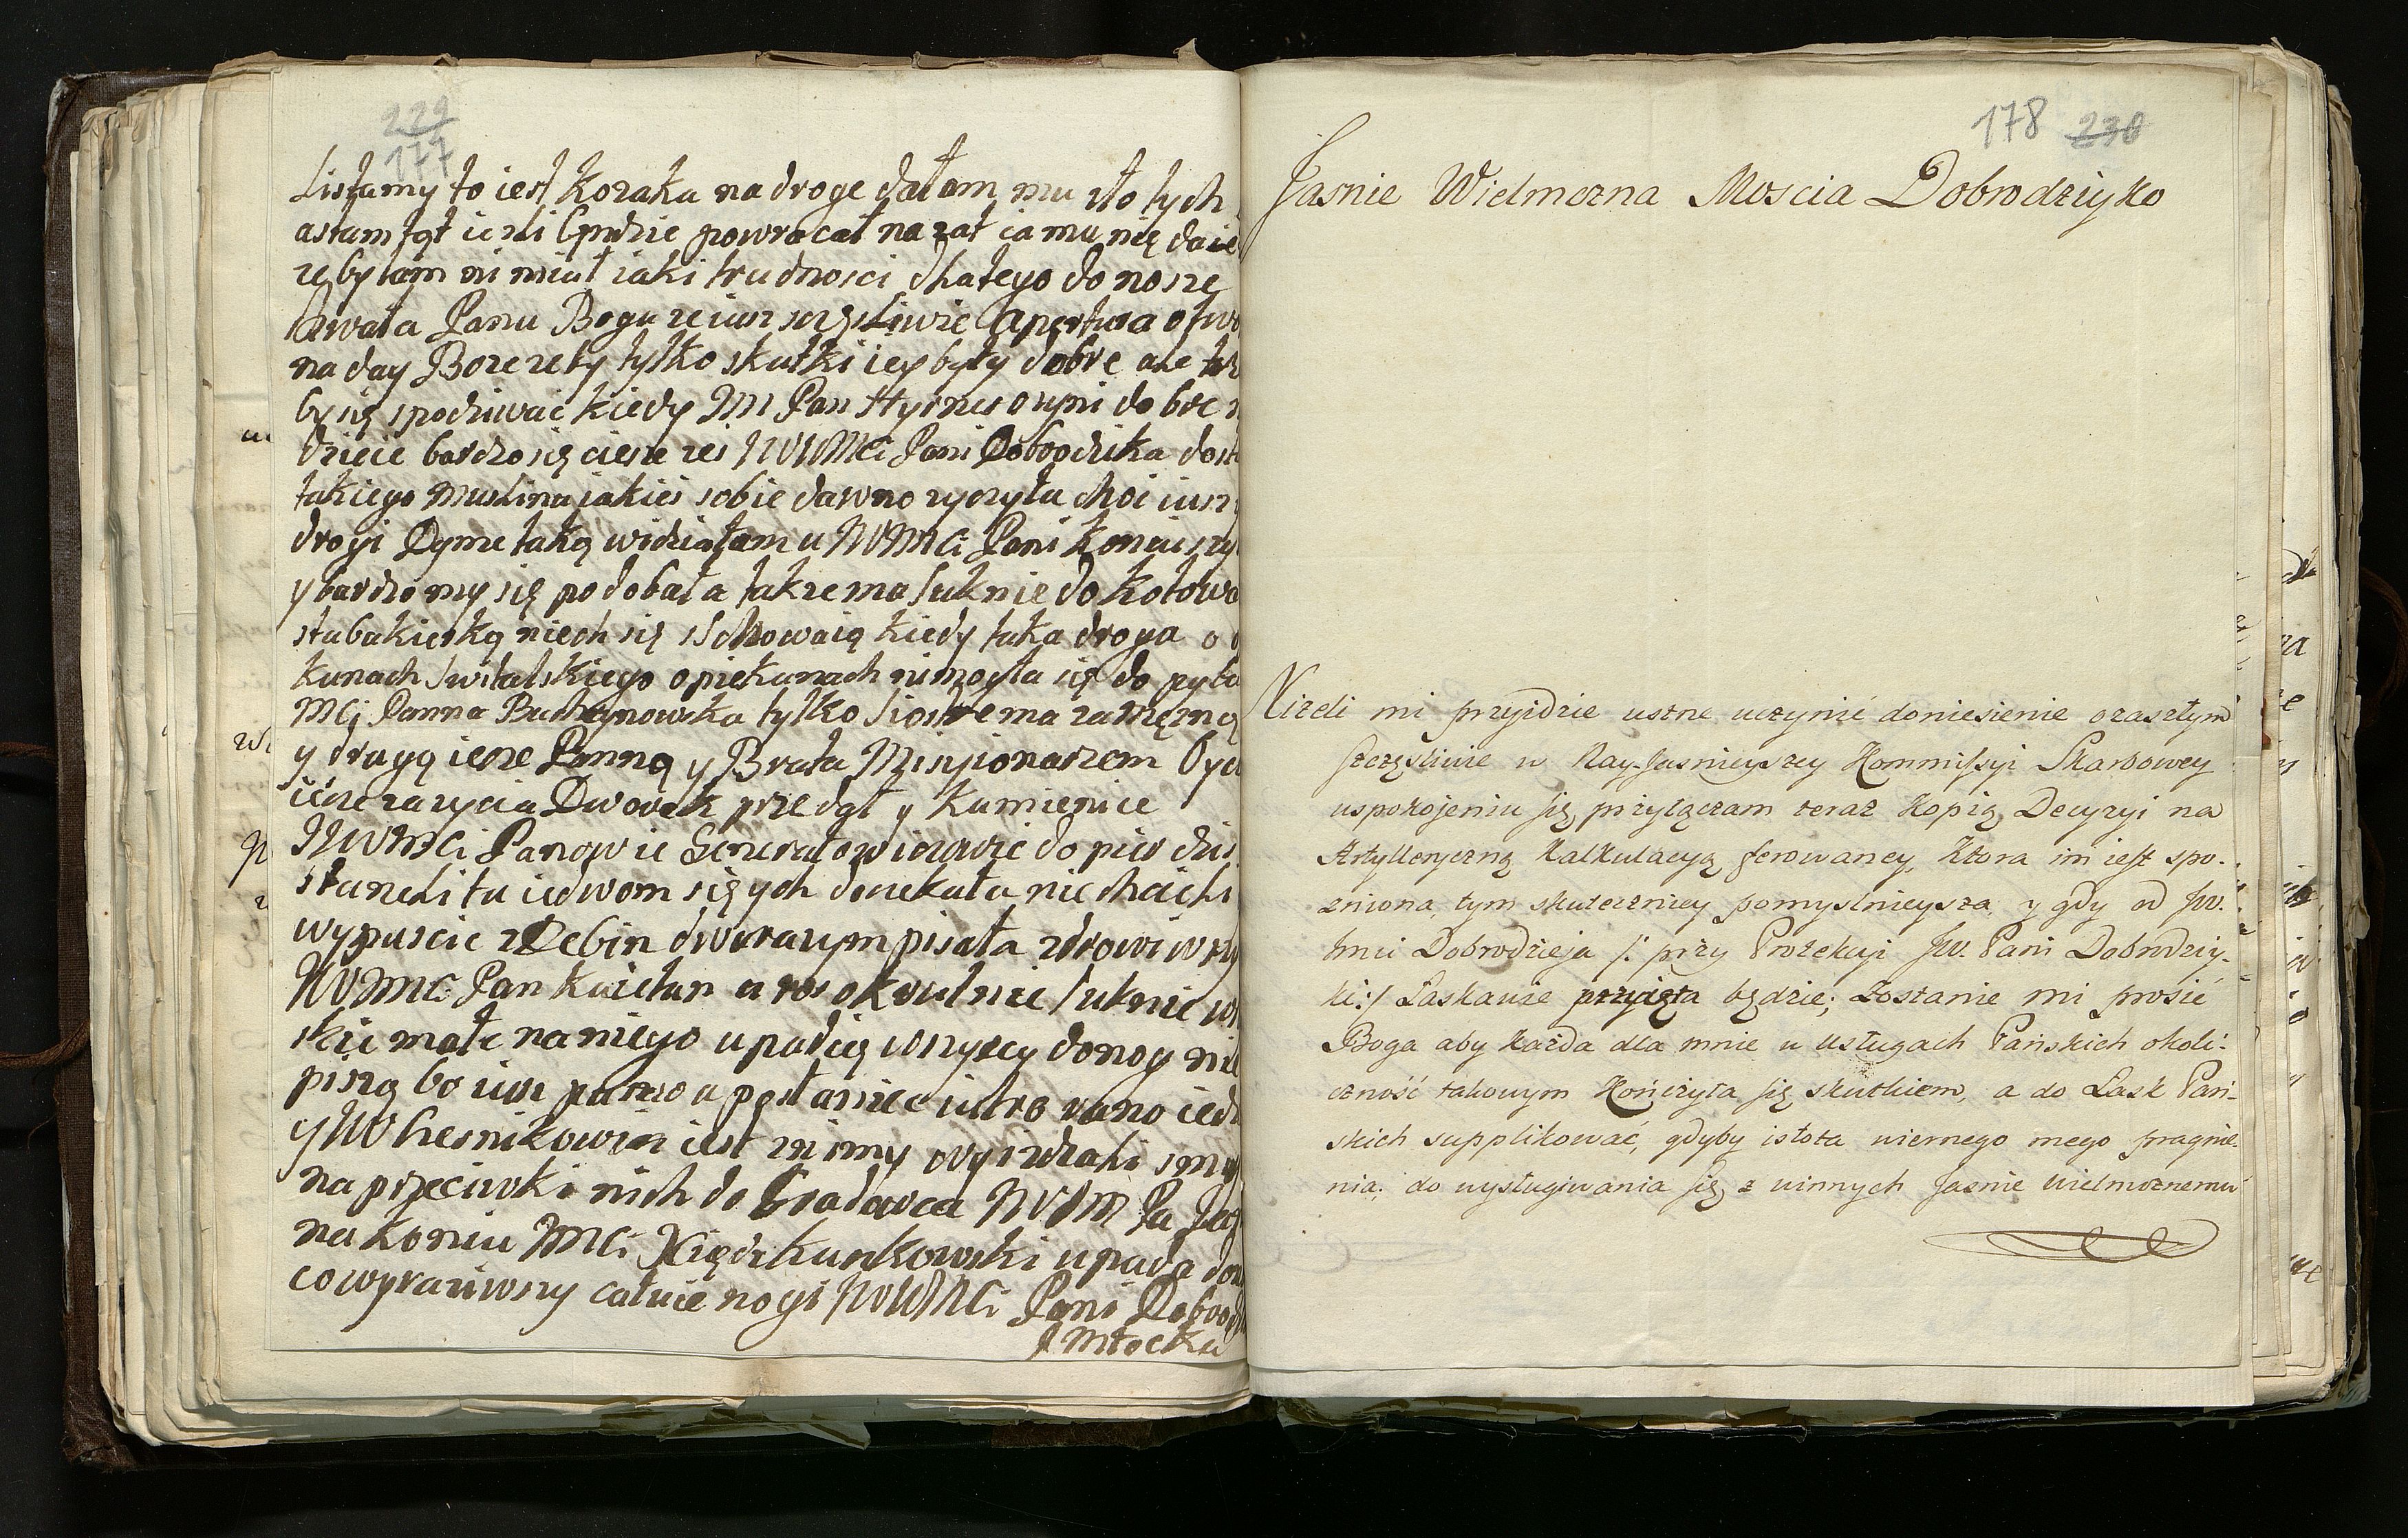 229
177
Listamy to iest Kozaka na droge dałam mu sto tych
astamtąt iezli będzie powracał nazat ia mu nię daie
ze by tam ni miał iaki trudnosci dlatego donosze
Chwała Panu Bogu ze iusz szczęsliwie Apertura otwo
na day Boze zeby tylko skutki iey były dobre ale
by się spodziwać kiedy Pan
dziecie bardzo się ciesze zes JWWMCi Pani Dobrodzika
takiego muslinu jakiés sobie dawno zyczyła choć iusz
drogi Dyme taką widziałam u JWMCi Pani Koniuszy
y bardzo my się podobała takze ma suknie do
stabakierką niech się schowaią kiedy taka droga o
kunach Switalskiego opiekunach nimogła się do pyta
MCi Panna tylko siostre ma zamęzną
y drugą iesze Panną y Brata Misjionarzem Oyc
iesze zazycia Dworek przedął y Kamienice
JWMCi Panowie do pier dzis
staneli tu iedwom się ych donekała nie chcieli
wypuscic z Debin dwa razym pisała zdrowi
JWMC Pan Kaietan suknie
małe naniego upadią wszyscy donog nie
piszą bo iusz puzno a posłaniec iutro rano iedzie
y JW iest znimy wyiezdzali smy
naprzeciwki nich do JWJM Pa
na koniu JMCi Xiądz Kunkowski upada do
co wyraziwszy całuie nogi JWWMCi Pani Dobrodz
J Młocka
178 230
Jasnie Wielmozna Moscia Dobrodziyko
Nizeli mi przyidzie ustne uczynić doniesienie ozaszłym
szczęśliwie w Nay-Jasnieyszey Kommissyi Skarbowey
uspokojeniu się, przyłączam teraz Kopią Decyzyi na
Artylleryczną Kalkulacyą ferowaney, Ktora im iest spo-
zniona, tym skuteczniey pomyslnieysza, y gdy od JW.
Imci Dobrodzieja /: przy Protekcyi JW. Pani Dobrodziy-
ki :/ Łaskawie przyięta będzie; Zostanie mi prosić
Boga aby każda dla mnie w usługach Pańskich okoli-
czność takowym Kończyła się skutkiem, a do Łask Pań-
skich supplikować, gdyby istota wiernego mego pragnie-
nia: do wysługiwania się z winnych Jasnie Wielmoznemu